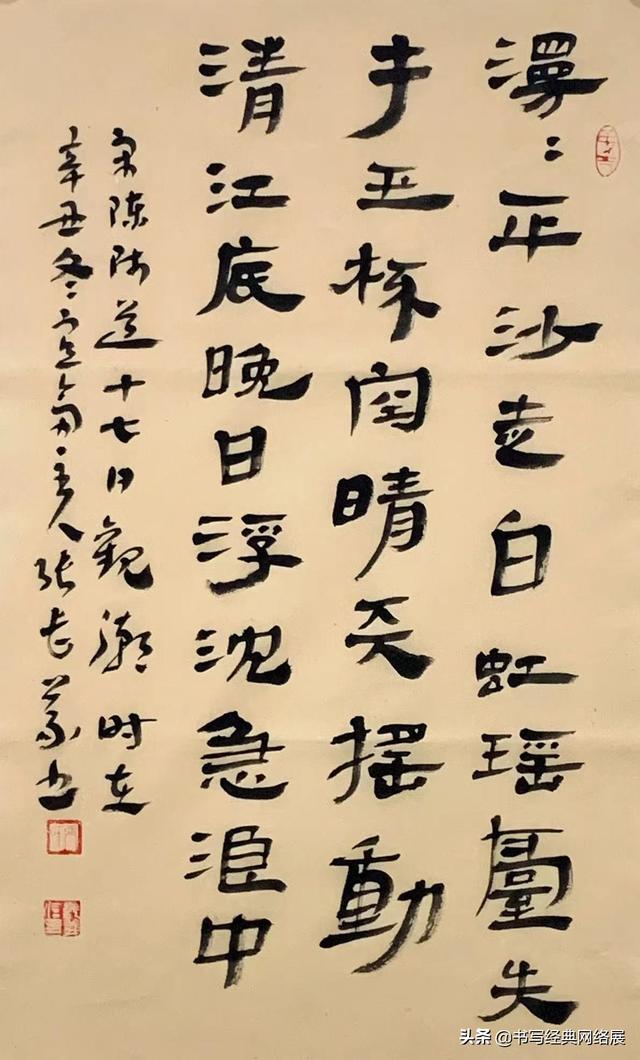 漫〻平沙走白虹瑶臺失
手玉杯空晴天摇動
清江底晚日浮沈急浪中
宋陈师道十七日觀潮时在
辛丑冬主人张长义书
头条 @书写经典网络展